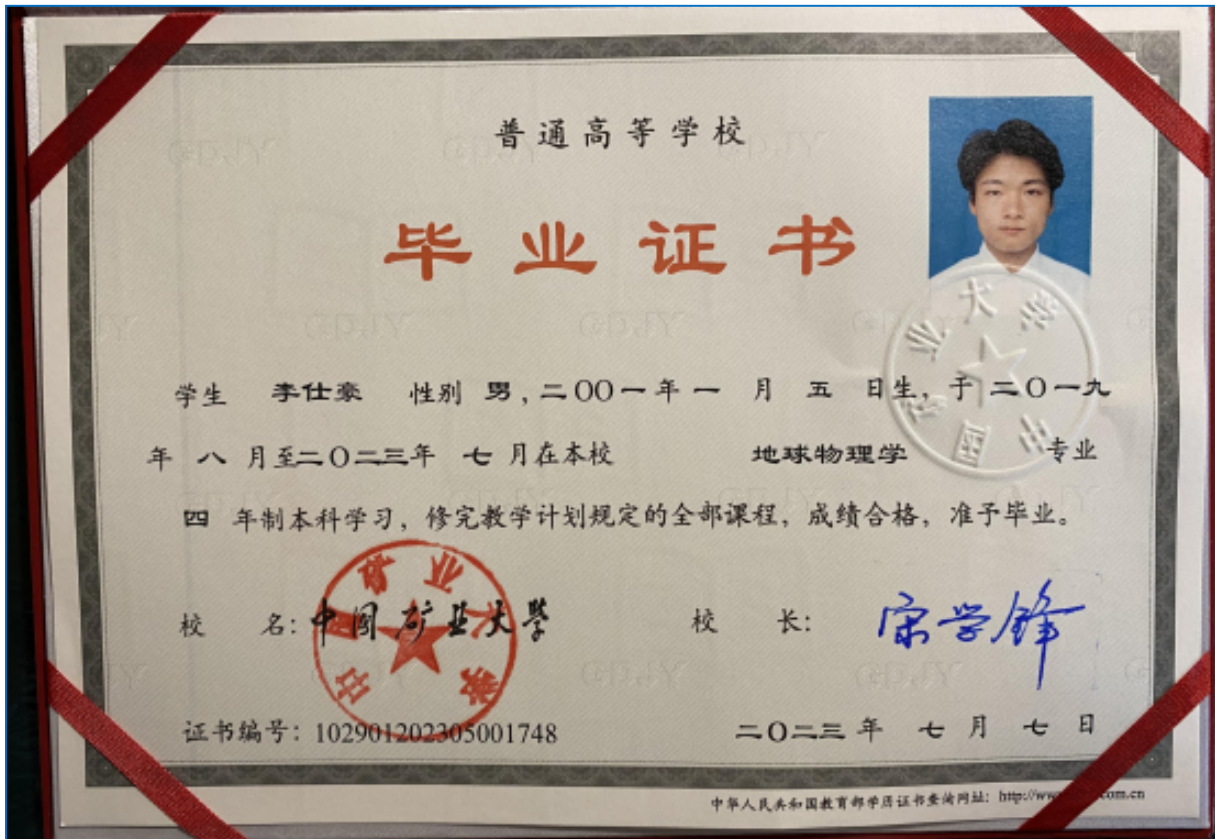 普通高等学校
毕业证书
学生 李仕豪 性别 男,二〇〇一年 一 月 五 日生,于 二〇一九
年 八 月至二〇二三年 七 月在本校 地球物理学 专业
四 年制本科学习,修完教学计划规定的全部课程,成绩合格,准予毕业。
校 名:中国矿业大学 校 长:宋学锋
证书编号:102901202305001748 二〇二三 年 七 月 七 日
中华人民共和国教育部学历证书查询网址:http://www com.cn